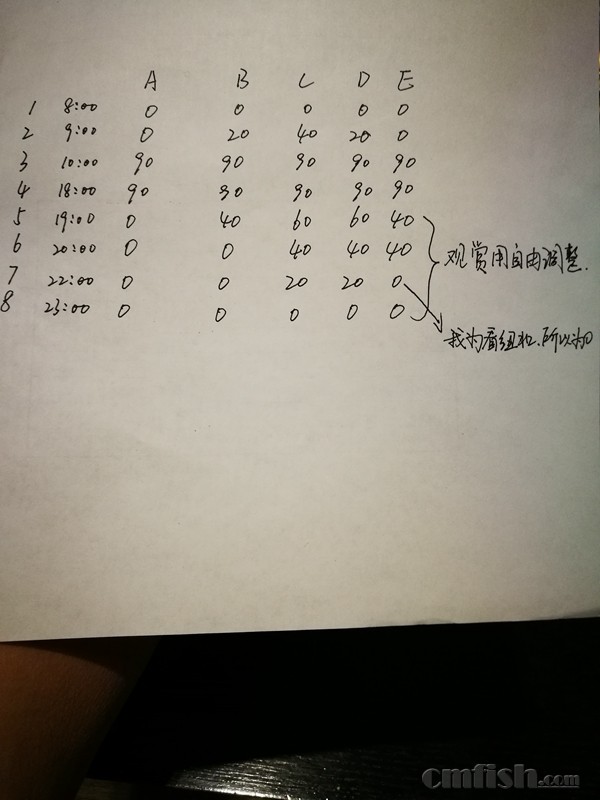 A B C D E
1 8:00 0 0 0 0 0
2 9:00 0 20 40 20 0
3 10:00 90 90 90 90 90
4 18:00 90 90 90 90 90
5 19:00 0 40 60 60 40
6 20:00 0 0 40 40 40
观赏用自由调整.
7 22:00 0 0 20 20 0
8 23:00 0 0 0 0 0
我为看纽扣.所以为0
cmfish.com